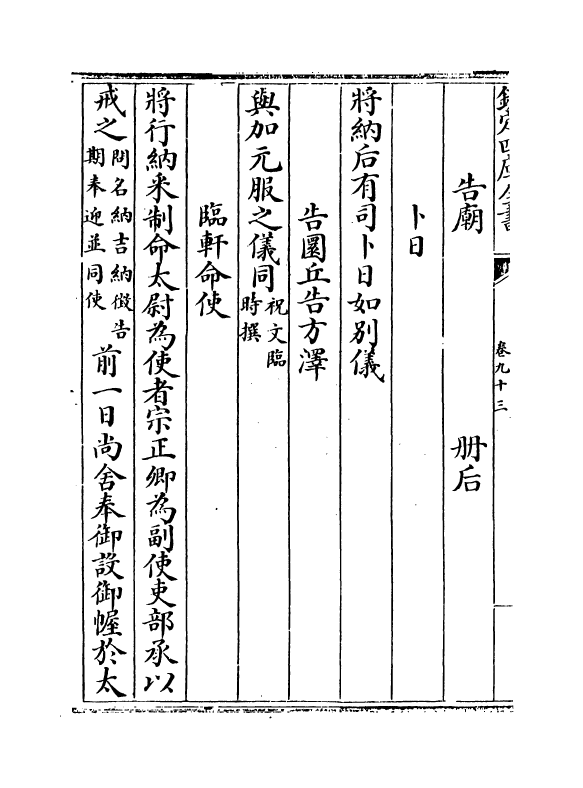 欽定四庫全書
卷九十三
告廟　冊后
卜日
將納后有司卜日如別儀
告圜丘告方澤
與加元服之儀同祝文臨時撰
臨軒命使
將行納采制命太尉為使者宗正卿為副使吏部承以
戒之問名納吉納徵告期奉迎並同使前一日尚舍奉御設御幄於太